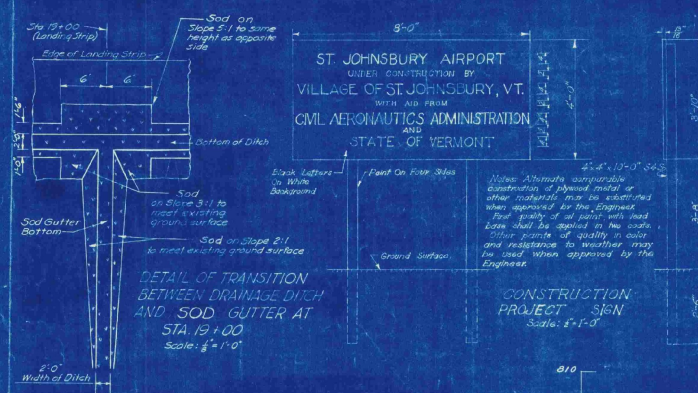 Sta. 19+00
(Landing Strip)
Edge of Landing Strip
Sod on
Slope 5:1 to same
height as opposite
side
6'
6'
1'-6"
1'-0"
Bottom of Ditch
Sod
on Slope 3:1 to
meet existing
ground surface
Sod Gutter
Bottom
Sod on Slope 2:1
to meet existing ground surface
DETAIL OF TRANSITION
BETWEEN DRAINAGE DITCH
AND SOD GUTTER AT
STA. 19+00
Scale: 1/8"=1'-0"
2'-0"
Width of Ditch
8'-0"
ST. JOHNSBURY AIRPORT
UNDER CONSTRUCTION BY
VILLAGE OF ST. JOHNSBURY, VT.
WITH AID FROM
CIVIL AERONAUTICS ADMINISTRATION
AND
STATE OF VERMONT
4'-0"
Black Letters
On White
Background
Paint On Four Sides
Ground Surface
4"x4"x10'-0" S4S
Notes: Alternate comparable
construction of plywood metal or
other materials may be substituted
when approved by the Engineer.
First quality of oil paint with lead
base shall be applied in two coats.
Other paints of quality in color
and resistance to weather may
be used when approved by the
Engineer.
CONSTRUCTION
PROJECT SIGN
Scale: 1/2"=1'-0"
810